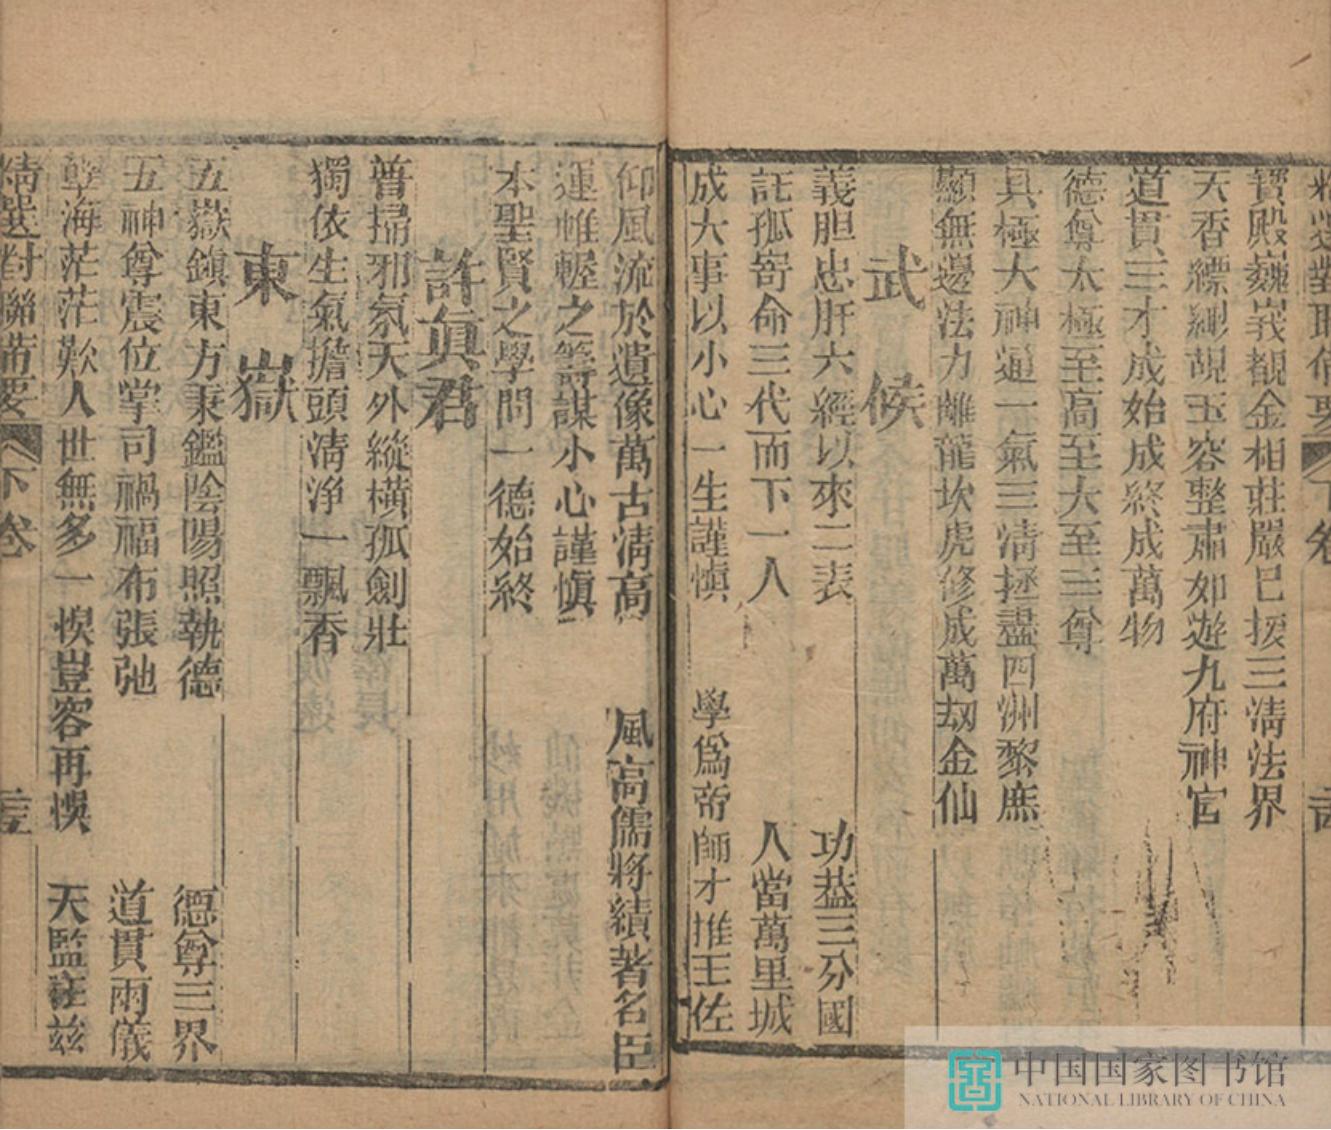 精選對聯備要 下卷
寶殿巍峩觀金相莊嚴巳援三淸法界
天香縹緲覩玉容整肅如遊九府神官
道貫三才成始成終成萬物
德尊太極至高至大至三尊
具極大神通一氣三淸拯盡四洲黎庶
顯無邊法力離龍坎虎修成萬刼金仙
武侯
義胆忠肝六經以來二表 功葢三分國
託孤寄命三代而下一人 人當萬里城
成大事以小心一生謹愼 學爲帝師才推王佐
仰風流於遺像萬古淸高 風高儒將績著名臣
運帷幄之籌謀小心謹愼
本聖賢之學問一德始終
許眞君
普掃邪氛天外縱橫孤劍壯
獨依生氣擔頭淸淨一瓢香
東嶽
五嶽鎭東方秉鑑陰陽照執德 德尊三界
五神尊震位掌司禍福布張弛 道貫兩儀
孽海茫茫歎人世無多一悞豈容再悞 天監在兹
精選對聯備要 下卷
中国国家图书馆
NATIONAL LIBRARY OF CHINA